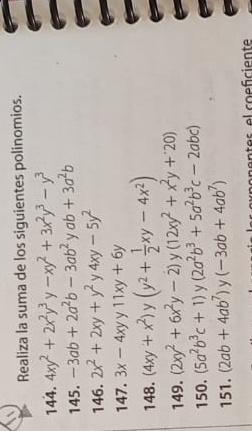 Realiza la suma de los siguientes polinomios.
144. 4xy² + 2x²y³ y −xy² + 3x²y³ − y³
145. −3ab + 2a²b − 3ab² y ab + 3a²b
146. 2x² + 2xy + y² y 4xy − 5y²
147. 3x − 4xy y 11xy + 6y
148. (4xy + x²) y (y² + 1/2 xy − 4x²)
149. (2xy² + 6x²y − 2) y (12xy² + x²y + 20)
150. (5a²b³c + 1) y (2a²b³ + 5a²b³c − 2abc)
151. (2ab + 4ab⁷) y (−3ab + 4ab⁷)
exponentes el coeficiente